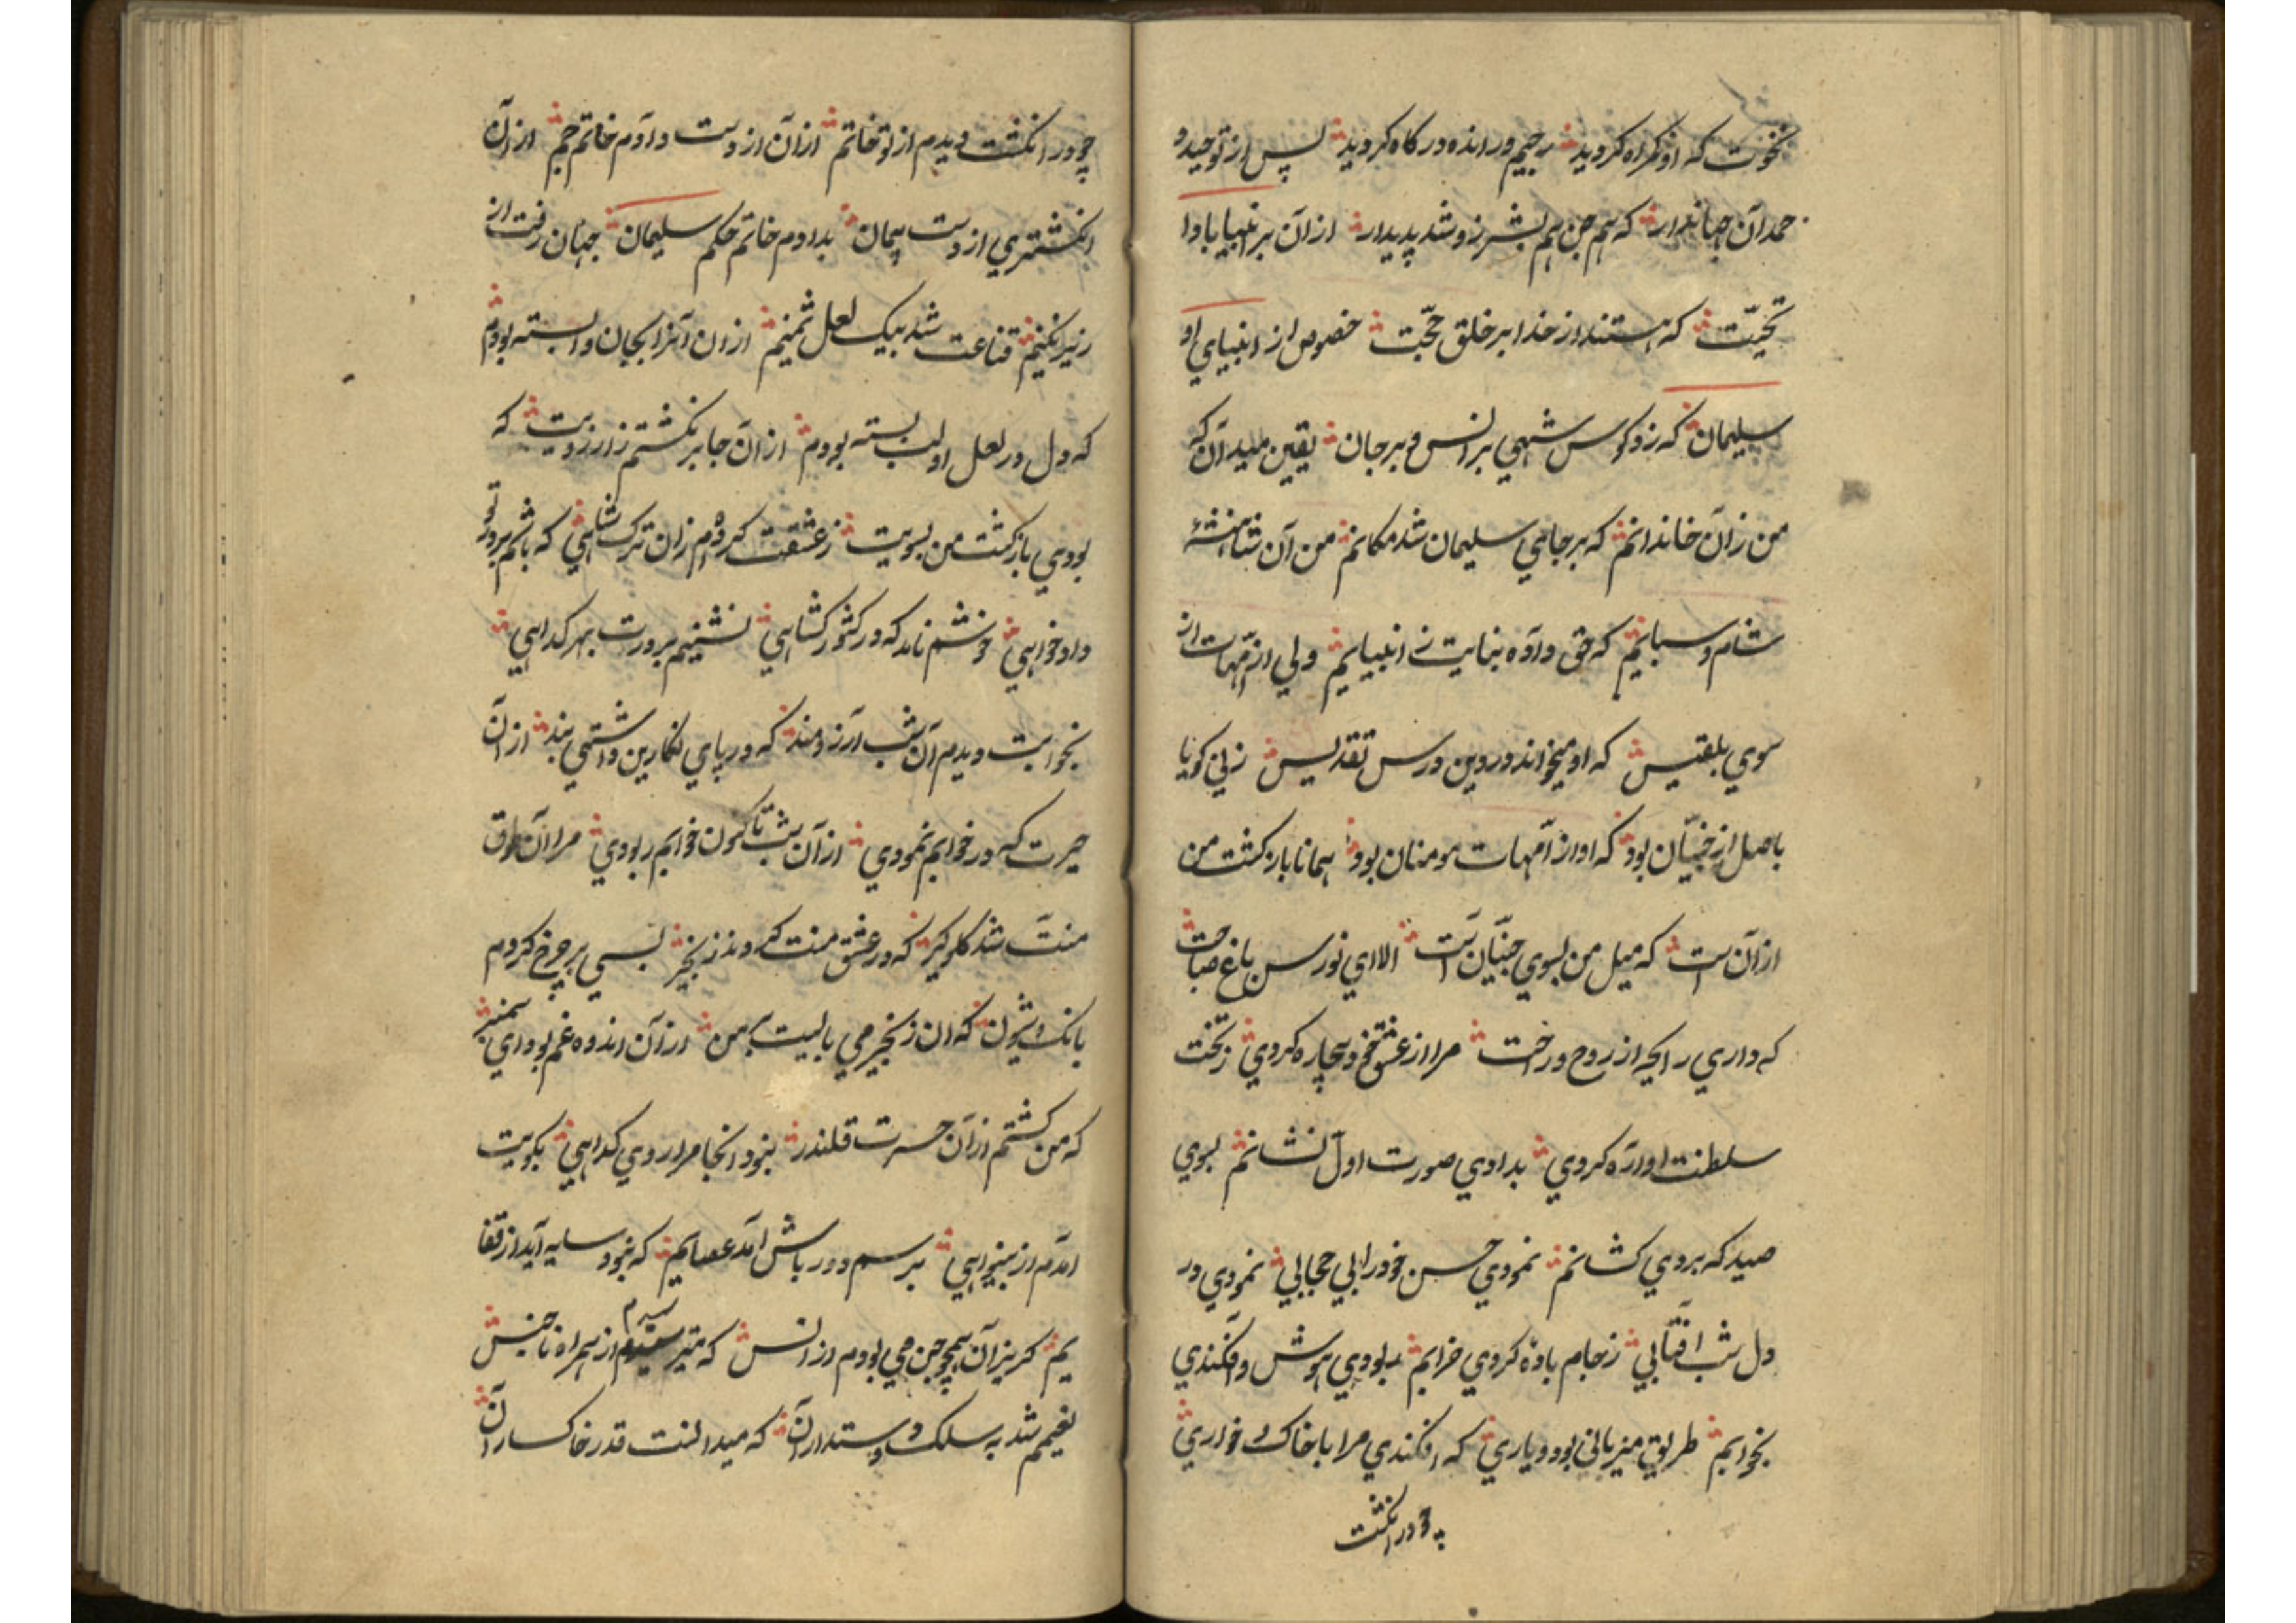 نخوت که او کمراه کردید رجیم و رانده درکاه کردید پس از توحید و
حمد آن جهاندار که هم جن هم بشر زو شد پدیدار از آن بر انبیا بادا
تحیّت که هستند از خدا بر خلق حجّت خصوص از انبیای او
سلیمان که زد کوس شهی بر انس و بر جان یقین میدان که
من زان خاندانم که بر جای سلیمان شد مکانم من آن شاهنشه
شام و سبایم که حق داده بنایت ز انبیایم ولی از امّهات از
سوی بلقیس که او میخواند در دین درس تقدیس زنی کو با
باصل از جنیّان بود که او از امّهات مومنان بود همانا بازکشت من
از آن است که میل من بسوی جنیّان است الا ای نورس باغ صباحت
که داری رایحه از روح و راحت مرا از عشق خود بیچاره کردی ز تخت
سلطنت اواره کردی بدادی صورت اول نشانم بسوی
صید که بردی کشانم نمودی حسن خود را بی حجابی نمودی در
دل شب افتابی ز جام باده کردی خرابم ربودی هوش و افکندی
بخوابم طریق میزبانی بود و یاری که افکندی مرا با خاک و خواری
چو در انکشت
چو در انکشت دیدم از تو خاتم از آن از دست دادم خاتم جم از آن
انکشتری از دست پیمان بدادم خاتم حکم سلیمان جهان رفت از
زیر نکینم قناعت شد بیک لعل ثمینم از ان آنرا بجان وابسته بودم
که دل در لعل او لب بسته بودم از آن جا برنکشتم زارزویت که
بودی بازکشت من بسویت ز عشقت کرده‌ام زان ترک شاهی که باشم بر در تو
دادخواهی خوشم ناید که در کشور کشاهی نشینم بر درت بهر کداهی
بخوابت دیدم آن شب آرزومند که در پای نکارین داشتی بند از آن
حیرت که در خوابم نمودی از آن شب تا کنون خوابم ربودی مرا آن طوق
منّت شد کلوکیر که در عشق منت کردند زنجیر بسی بر چرخ کردم
بانک و شیون که ان زنجیر می بایست بر من از آن اندوه غم بود ای سمنبر
که من کشتم از آن حسرت قلندر بنود انجا مرا روی کداهی بکویت
امدم از بینواهی برسم دور باش آمد عصایم که بنود سایه آید از قفا
یم کریزان همچو جن می بودم از انس که میترسیدم از همراه ناجنس
نغیمم شد به سلک دوستداران که میدانست قدر خاکساران